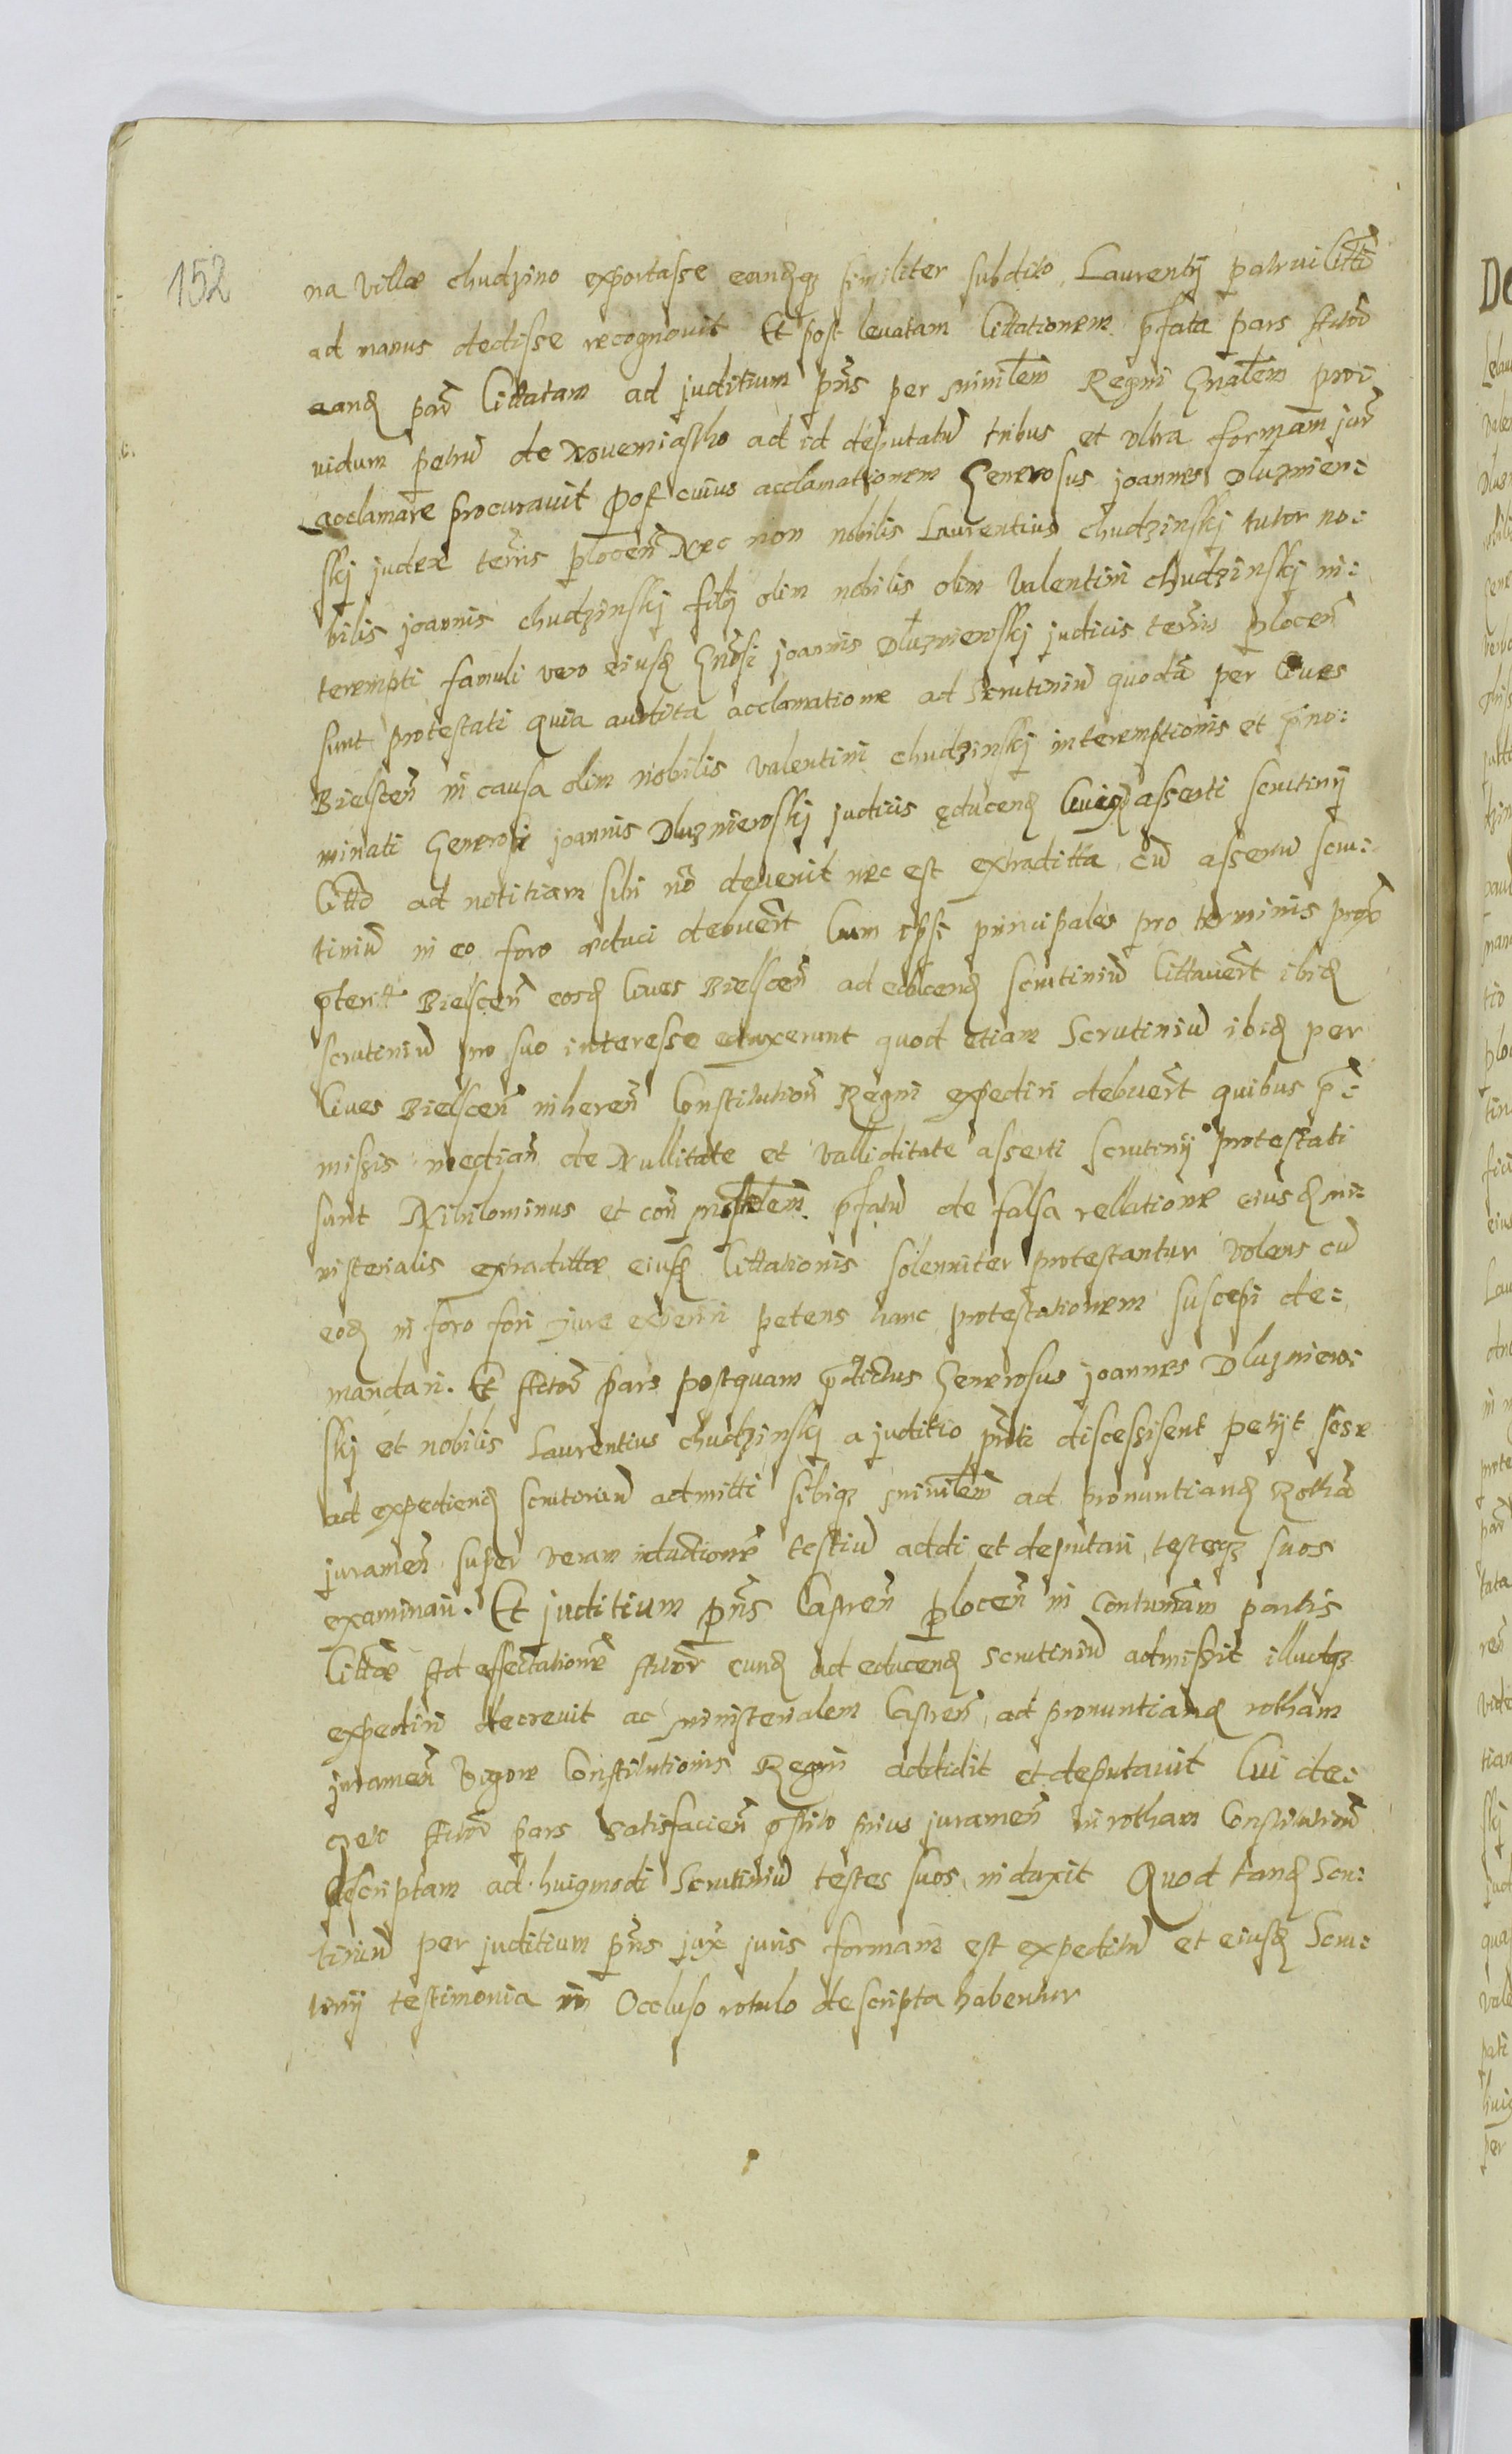 152
na villæ chudzino exportasse eandq₃ similiter subdito Laurentij patrui Citti
ad manus dedisse recognouit Et post leuatam Cittationem p̄fata pars Actor̄
eand par̄ Cittatam ad juditium pn̄s per minil̄em Regni Gnāl̄em proi
uidum petrū de Nouemiastho ad id deputatū tribus et vltra formam jur̄
acclamare procurauit Post cuius acclamationem Generosus joannes Dluznien:
skj judex terr̄is plocen̄ Nec non nobilis Laurentius chudzinskj tutor no:
bilis joannis chudzinskj filij olim nobilis olim Valentini chudzinskj in:
terempti famuli vero eiusd Gnōsi joannis Dłuzniewskj judicis terr̄is plocen̄
sunt protestati quia audita acclamatione ad Scrutiniū quodā per Ciues
Bielscen̄ in causa olim nobilis Valentini chudzinskj interemptionis et p̄no:
minati Generosi joannis Dluzniewskj judicis educend Cuiusd asserti scrutinij
Citto ad notitiam sibi nō deuenit nec est extraditta cū assertū scru:
tiniū in eo foro educi debuer̄t Cum ipsi principales pro terminis prox̄
p̄terit Bielscen̄ eosd Ciues Bielscen̄ ad educend scrutiniū Cittauer̄t ibid
scrutiniū pro suo interesse eduxerunt quod etiam Scrutiniū ibid per
Ciues Bielscen̄ inheren̄ Constitution̄ Regni expediri debuer̄t quibus p̄:
missis median̄ de Nullitate et Valliditate asserti scrutinij protestati
sunt Nihilominus et con̄ p̄fatū de falsa rellatione eiusd mi:
nisterialis extradittæ eiusd Cittationis solenniter protestantur Volens cū
eod in foro fori jure experiri petens hanc protestationem suscepi de:
mandari. Et Actor̄ pars postquam p̄dictus Generosus joannes Dluzniew:
skj et nobilis Laurentius chudzinskj a juditio pn̄ti discessissent petijt sese
ad expediend scrutiniū admitti sibiq₃ minil̄em ad pronuntiand Rothā
juramen̄ super veram inductionē testiū addi et deputari testesq₃ suos
examinari. Et juditium pn̄s Castren̄ plocen̄ in Contumām partis
Cittæ Ad affectationē Actor̄ eund ad educend scrutiniū admissit illudq₃
expediri decreuit ac ministerialem Castren̄ ad pronuntiand rotham
juramen̄ Vigore Constitutionis Regni addidit et deputauit Cui de:
creto Actor̄ pars satisfacien̄ p̄stito prius juramen̄ in rotham Constitution̄
descriptam ad huiusmodi Scrutiniū testes suos induxit Quod tand Scru:
tiniū per juditium pn̄s jux̄ juris formam est expeditū et eiusd Scru:
tinij testimonia in Occluso rotulo descripta habentur